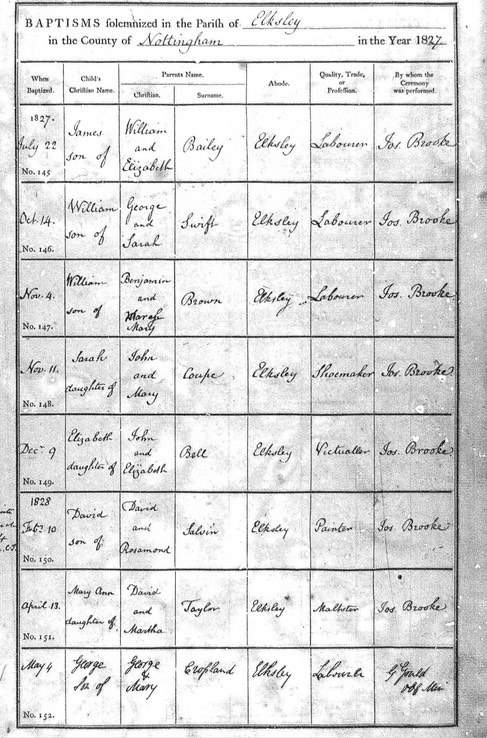 BAPTISMS solemnized in the Parish of Elksley
in the County of Nottingham in the Year 1827
When Baptized. Child's Christian Name. Parents Name. Abode. Quality, Trade, or Profession. By whom the Ceremony was performed.
Christian. Surname.
1827.
July 22 James son of William and Elizabeth Bailey Elksley Labourer Jos. Brooke
No. 145
Oct. 14. William son of George and Sarah Swift Elksley Labourer Jos. Brooke
No. 146.
Nov. 4. William son of Benjamin and Mary Brown Elksley Labourer Jos. Brooke
No. 147.
Nov. 11. Sarah daughter of John and Mary Coupe Elksley Shoemaker Jos. Brooke
No. 148.
Decr 9 Elizabeth daughter of John and Elizabeth Bell Elksley Victualler Jos. Brooke
No. 149.
1828
10 David son of David and Rosamond Salvin Elksley Painter Jos. Brooke
No. 150.
April 13. Mary Ann daughter of David and Martha Taylor Elksley Maltster Jos Brooke
No. 151.
May 4 George Son of George & Mary Cropland Elksley Labourer G Gould Off Min
No. 152.